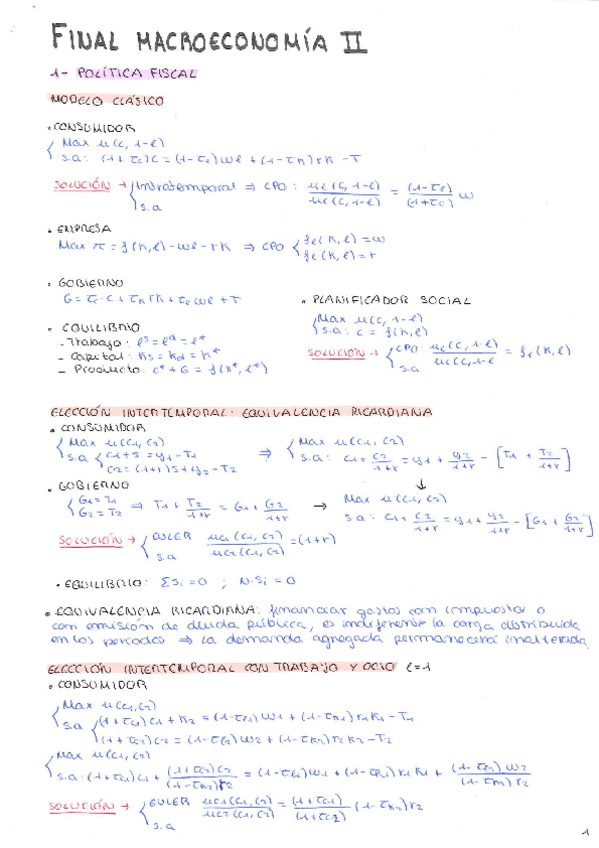 FINAL MACROECONOMÍA II
1- POLÍTICA FISCAL
MODELO CLÁSICO
• CONSUMIDOR
Max u(c, 1-l)
s.a: (1+τc)c = (1-τl)wl + (1-τk)rk - T
SOLUCIÓN → Intratemporal ⇒ CPO:
= (1-τl)/(1+τc) w
s.a
• EMPRESA
Max π = f(k,l) - wl - rk ⇒ CPO
= w
= r
• GOBIERNO
G = τc·c + τk rk + τl wl + T
• EQUILIBRIO
- Trabajo: lˢ = lᵈ = l*
- Capital: ks = kd = k*
- Producto: c* + G = f(k*, l*)
• PLANIFICADOR SOCIAL
Max u(c, 1-l)
s.a: c = f(k,l)
SOLUCIÓN → CPO:
s.a
ELECCIÓN INTERTEMPORAL: EQUIVALENCIA RICARDIANA
• CONSUMIDOR
Max u(c1, c2)
s.a c1 + s = y1 - T1
c2 = (1+r)s + y2 - T2
⇒ Max u(c1, c2)
s.a: c1 + c2/(1+r) = y1 + y2/(1+r) - [T1 + T2/(1+r)]
• GOBIERNO
G1 = T1
G2 = T2
⇒ T1 + T2/(1+r) = G1 + G2/(1+r) →
↓
Max u(c1, c2)
s.a: c1 + c2/(1+r) = y1 + y2/(1+r) - [G1 + G2/(1+r)]
SOLUCIÓN → EULER uc1(c1, c2)/uc2(c1, c2) = (1+r)
s.a
• EQUILIBRIO: Σsi = 0 ; N·Si = 0
• EQUIVALENCIA RICARDIANA: financiar gastos con impuestos o
con emisión de deuda pública, es indiferente la carga distribuida
en los periodos ⇒ la demanda agregada permanecerá inalterada.
ELECCIÓN INTERTEMPORAL CON TRABAJO Y OCIO l=1
• CONSUMIDOR
Max u(c1, c2)
s.a (1+τc1)c1 + k2 = (1-τl1)w1 + (1-τk1)r1k1 - T1
(1+τc2)c2 = (1-τl2)w2 + (1-τk2)r2k2 - T2
Max u(c1, c2)
s.a: (1+τc1)c1 + (1+τc2)c2/(1-τk2)r2 = (1-τl1)w1 + (1-τk1)r1k1 + (1-τl2)w2/(1-τk2)r2
SOLUCIÓN → EULER uc1(c1, c2)/uc2(c1, c2) = (1+τc1)/(1+τc2) (1-τk2)r2
s.a
1